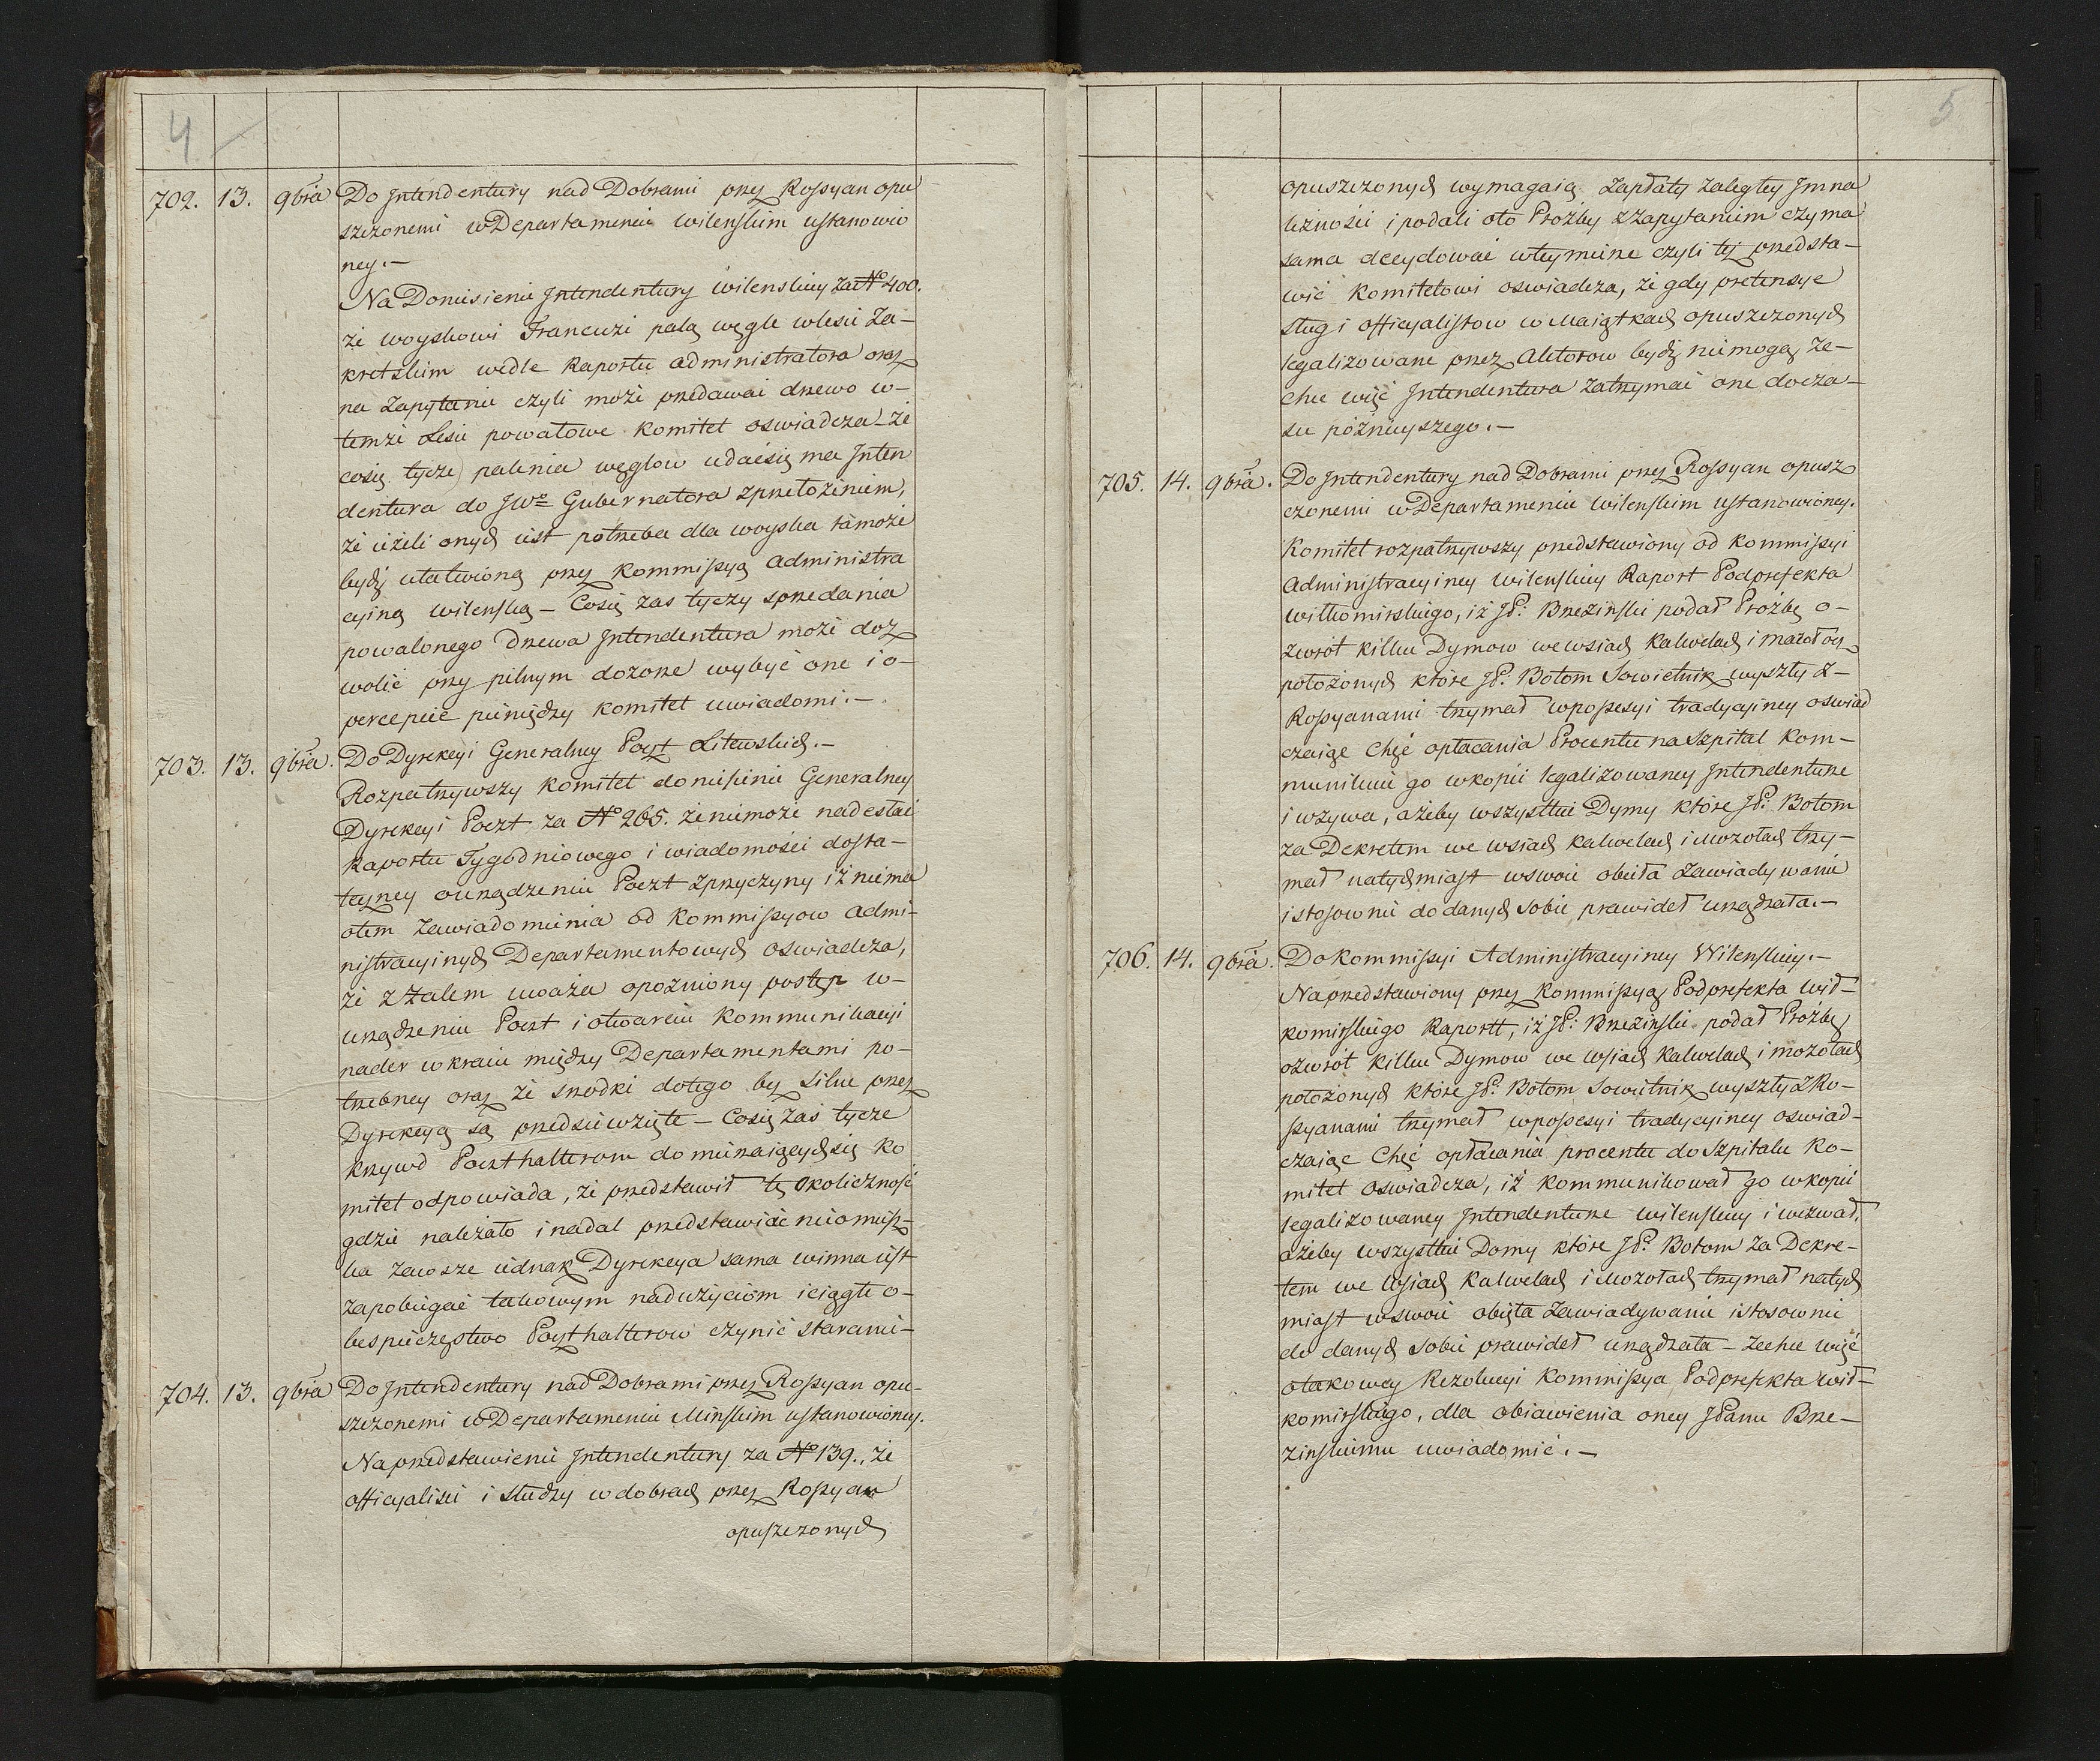 4
702. 13. 9bra Do Intendentury nad Dobrami przez Rossyan opu
szczonemi w Departamencie wilenskim ustanowio
ney.—
Na Doniesienie Intendentury wilenskiey za No 400.
że woyskowi Francuzi palą węgle w lesie Za-
kretskim wedle Raportu administratora oraz
na Zapytanie czyli może przedawać drzewo w-
temże Lesie powalowe Komitet oswiadcza – że
co się tycze palenia węglow uda się ma Inten
dentura do JWo Gubernatora z przełożeniem,
że ieżeli onych iest potrzeba dla woyska to może
bydź ułatwioną przez Kommissyą administra
cyiną wilenską – Co się zas tyczy sprzedania
powalonego Drzewa Intendentura może doz
wolić przy pilnym dozorze wybyć one i o-
percepcie pieniędzy Komitet uwiadomi.—
703. 13. 9bra. Do Dyrekcyi Generalney Poczt Litewskich.—
Rozpatrzywszy Komitet doniesienie Generalney
Dyrekcyi Poczt za No 265. że nie może nadesłać
Raportu Tygodniowego i wiadomości dosta-
teczney o urządzeniu Poczt z przyczyny iż nie ma
o tem Zawiadomienia od Kommissyow Admi-
nistracyinych Departamentowych oswiadcza,
że z Żalem uważa opozniony postęp w-
urządzeniu Poczt i otwarciu Kommunikacyi
nader w kraiu między Departamentami po-
trzebney oraz że srzodki do tego by silne przez
Dyrekcyą są przedsiewzięte – Co się zaś tycze
krzywd Poczthalterom do mierzaiących się Ko
mitet odpowiada, że przedstawił tę okoliczność
gdzie należało i nadal przedstawiać nie omiesz-
ka zawsze iednak Dyrekcya sama winna iest
zapobiegać takowym nadużyciom i ciągłe o-
bespieczęstwo Poczthalterow czynić staranie—
704. 13. 9bra Do Intendentury nad Dobrami przez Rossyan opu-
szczonemi w Departamencie Minskim ustanowioney.
Na przedstawienie Intendentury za No 139., że
officyalisci i słudzy w dobrach przez Rossyan
opuszczonych
5
opuszczonych wymagaią Zapłaty zaległey Im na
leżności i podali o to Proźby z Zapytaniem czy ma
sama decydować w tey mierze czyli też przedsta-
wić Komitetowi oswiadcza, że gdy pretensye
sług i officyalistow w Maiątkach opuszczonych
legalizowane przez Aktorow bydź nie mogą, Ze-
chce więc Intendentura Zatrzymać one do cza-
su pożnieyszego.—
705. 14. 9bra. Do Intendentury nad Dobrami przez Rossyan opusz
czonemi w Departamencie wilenskim ustanowioney.
Komitet rozpatrzywszy przedstawiony od Kommissyi
Administracyiney Wilenskiey Raport Podprefekta
wiłkomirskiego, iż JP: Brzezinski podał Proźbę o-
zwrót kilku Dymow we wsiach Kalwelach i Mazołach
położonych które JP: Botom Sowietnik wyszły z-
Rossyanami trzymał w possesyi tradycyiney oswiad
czaiąc Chęć opłacania Procentu na Szpital Kom-
munikuie go w kopii legalizowaney Intendenturze
i wzywa, ażeby wszystkie Dymy które JP: Botom
za Dekretem we wsiach Kalwelach i Mozołach trzy-
mał natychmiast w swoie obieła Zawiadywanie
i stosownie do danych sobie prawideł urządzała.—
706. 14. 9bra. Do Kommissyi Administracyiney Wilenskiey.—
Na przedstawiony przez Kommissyą Podprefekta wił-
komirskiego Raportt, iż JP: Brzezinski podał Próżbę
o zwrót kilku Dymow we wsiach Kalwelach i mozołach
położonych które JP: Botom Sowietnik wyszły z Ro-
ssyanami trzymał w possesyi tradycyiney oswiad-
czaiąc Chęć opłacania procentu do Szpitalu Ko-
mitet oswiadcza, iż kommunikował go w kopii
legalizowaney Intendenturze wilenskiey i wezwał,
ażeby wszystkie Domy które JP: Botom Za Dekre-
tem we wsiach Kalwelach i Mozołach trzymał natych
miast w swoie obięła Zawiadywanie i stosownie
do danych sobie prawideł urządzała – Zechce więć
o takowey Rezolucyi Kommissya Podprefekta wił-
komirskiego, dla obiawienia oney JPanu Brze-
zinskiemu uwiadomić.—